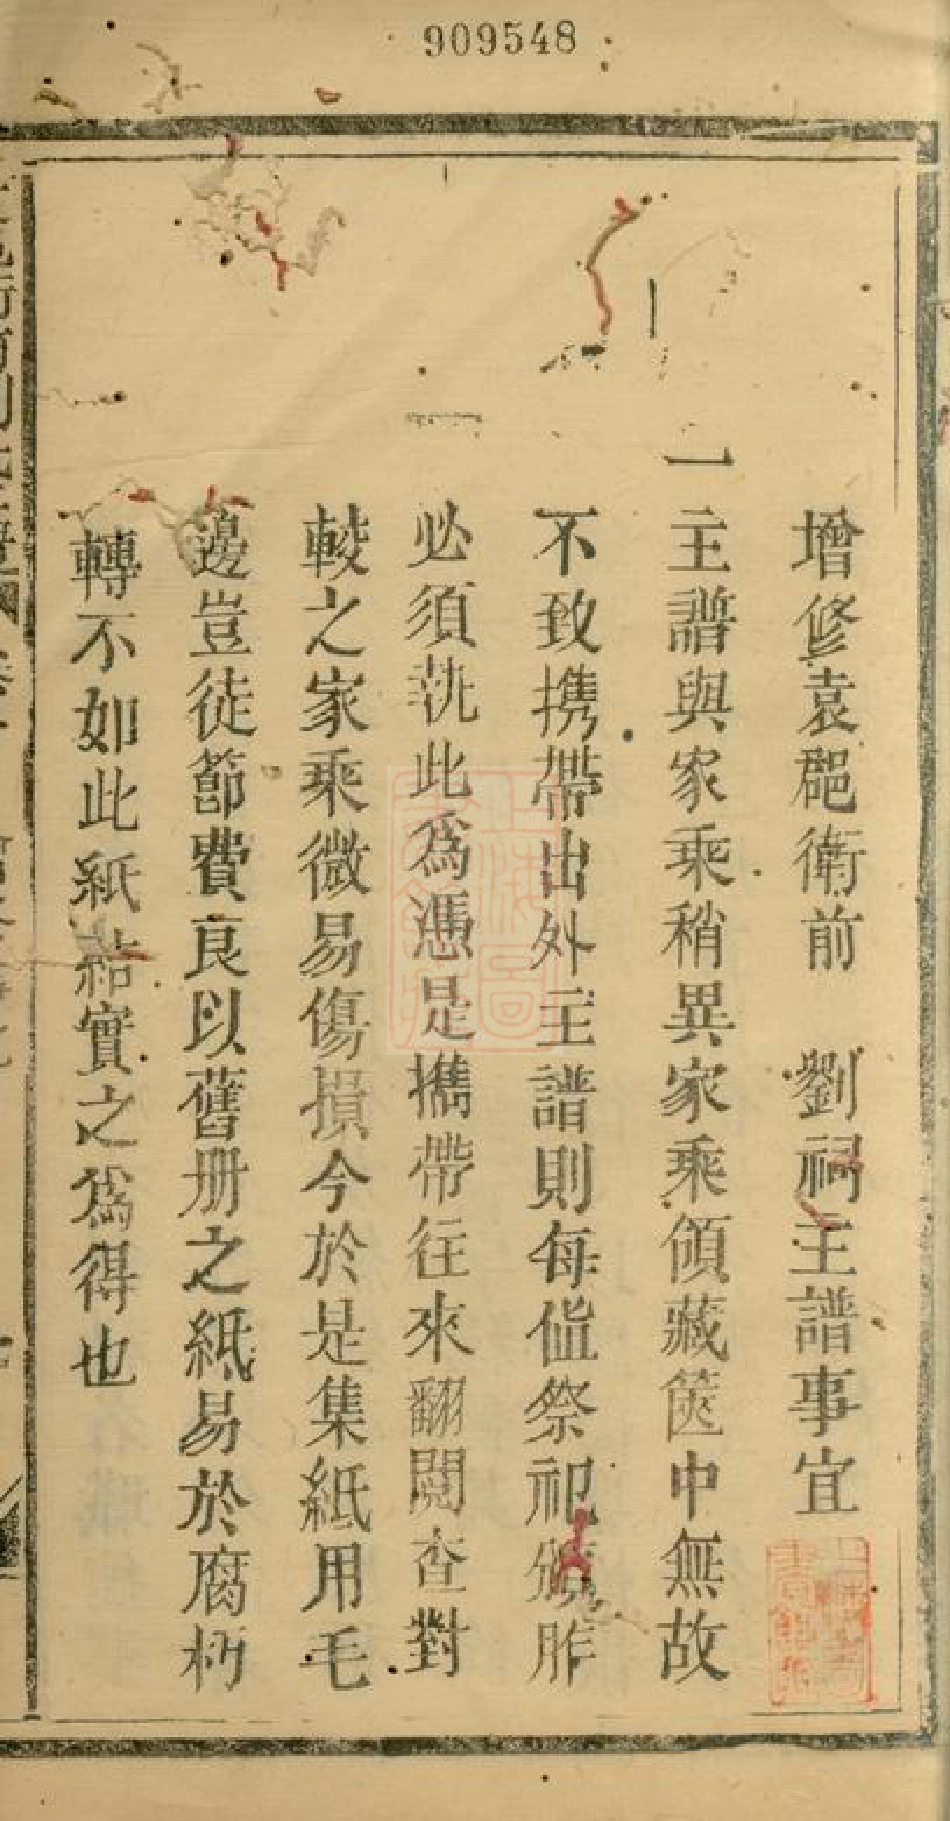 909548
增修袁郡衛前　劉祠主譜事宜
一主譜與家乘稍異家乘領藏篋中無故
不致携帶出外主譜則每値祭祀頒胙
必須執此爲憑是攜帶往來翻閱查對
較之家乘微易傷損今於是集紙用毛
邊豈徒節費良以舊册之紙易於腐朽
轉不如此紙黏實之爲得也